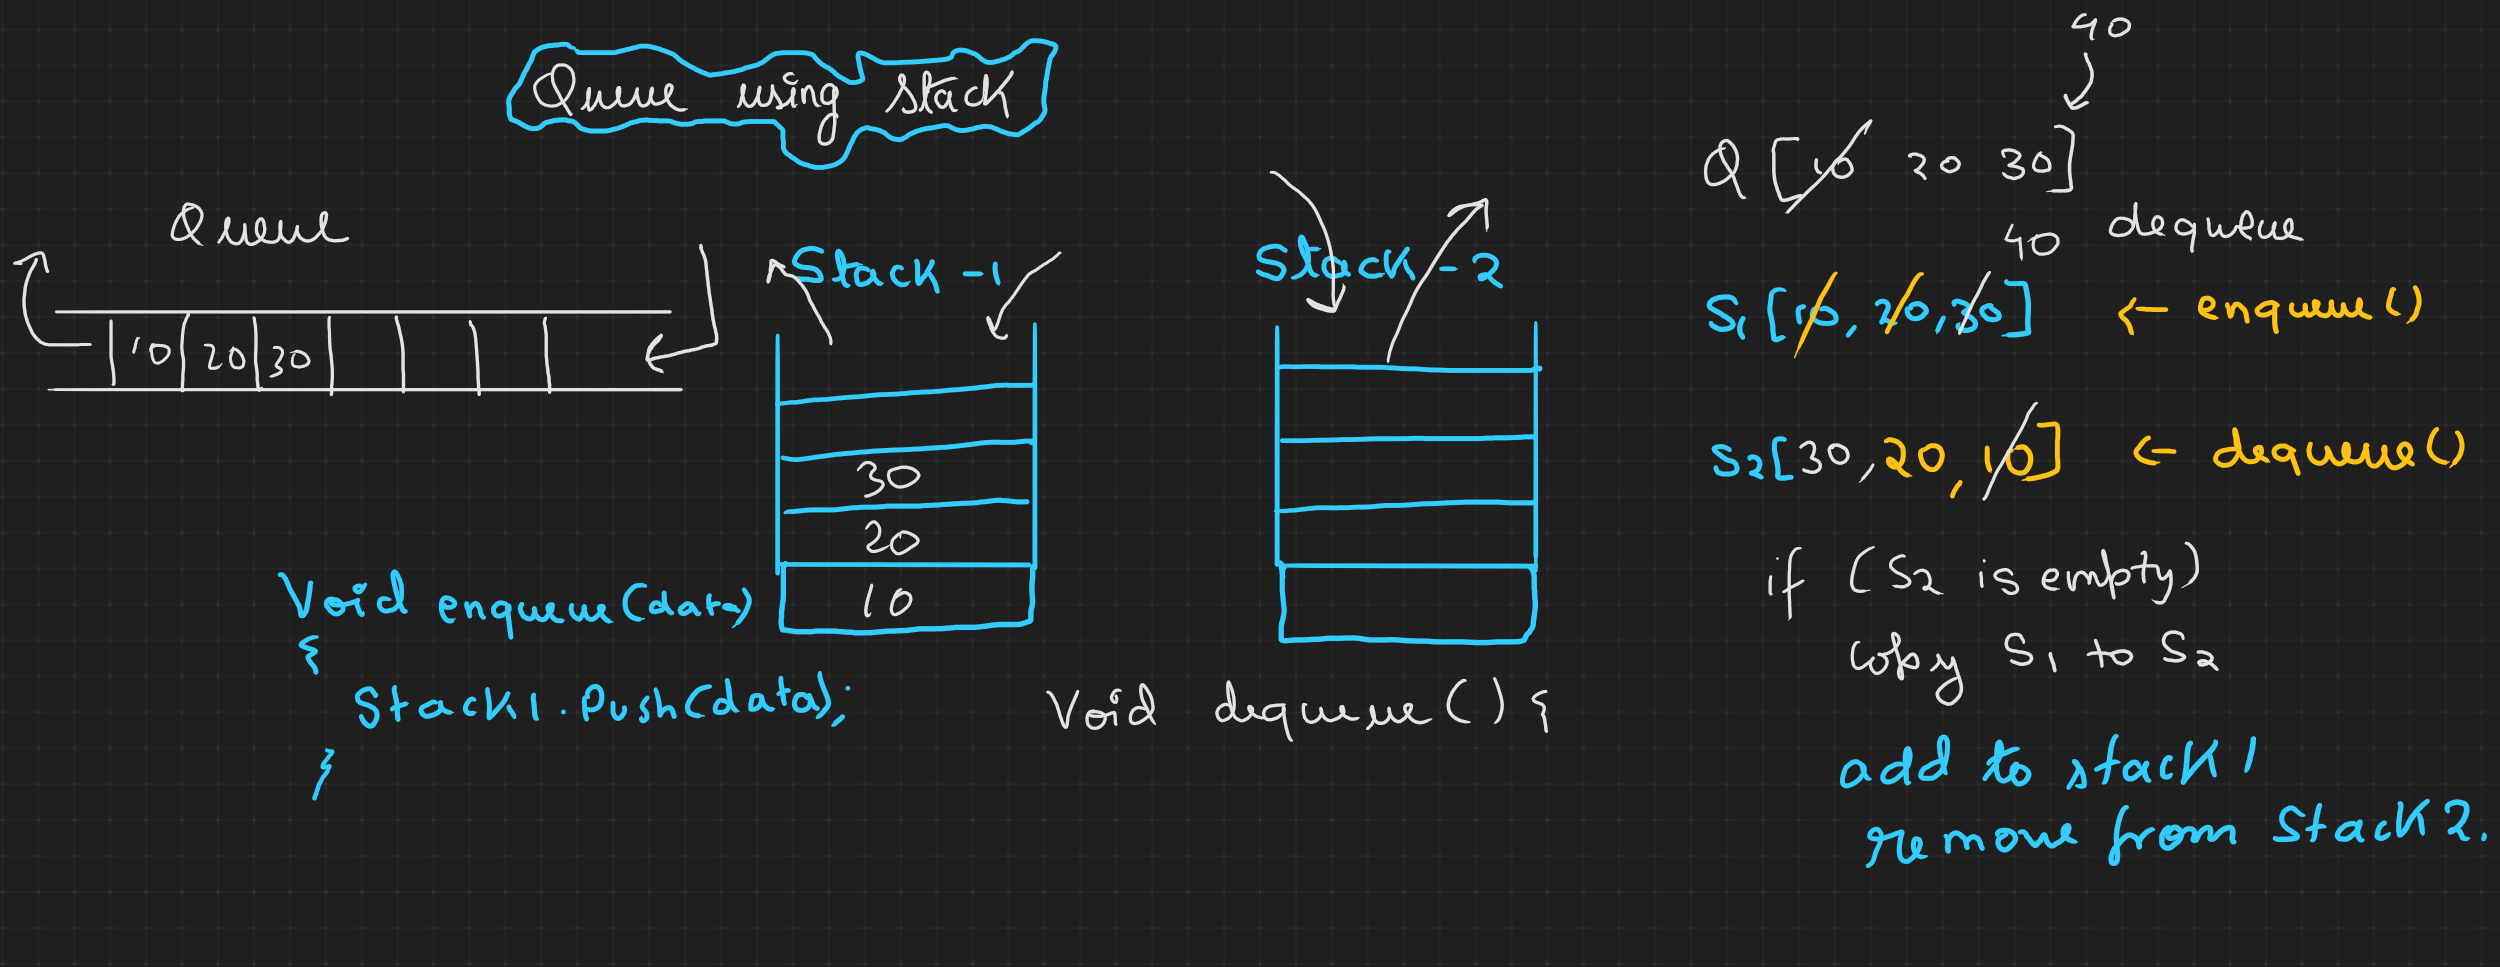 Queue using stack
Queue
10 20 30
Void enqueue(data)
{
stack1.push(data);
}
Stack-1
30
20
10
Stack-2
Void dequeue() {
40
Q [10 20 30]
40 dequeue
S1 [10, 20, 30] <- enqueue()
S2 [30, 20, 10] <- dequeue()
if (S2 is empty)
Copy S1 to S2
add to stack1
remove from stack2.